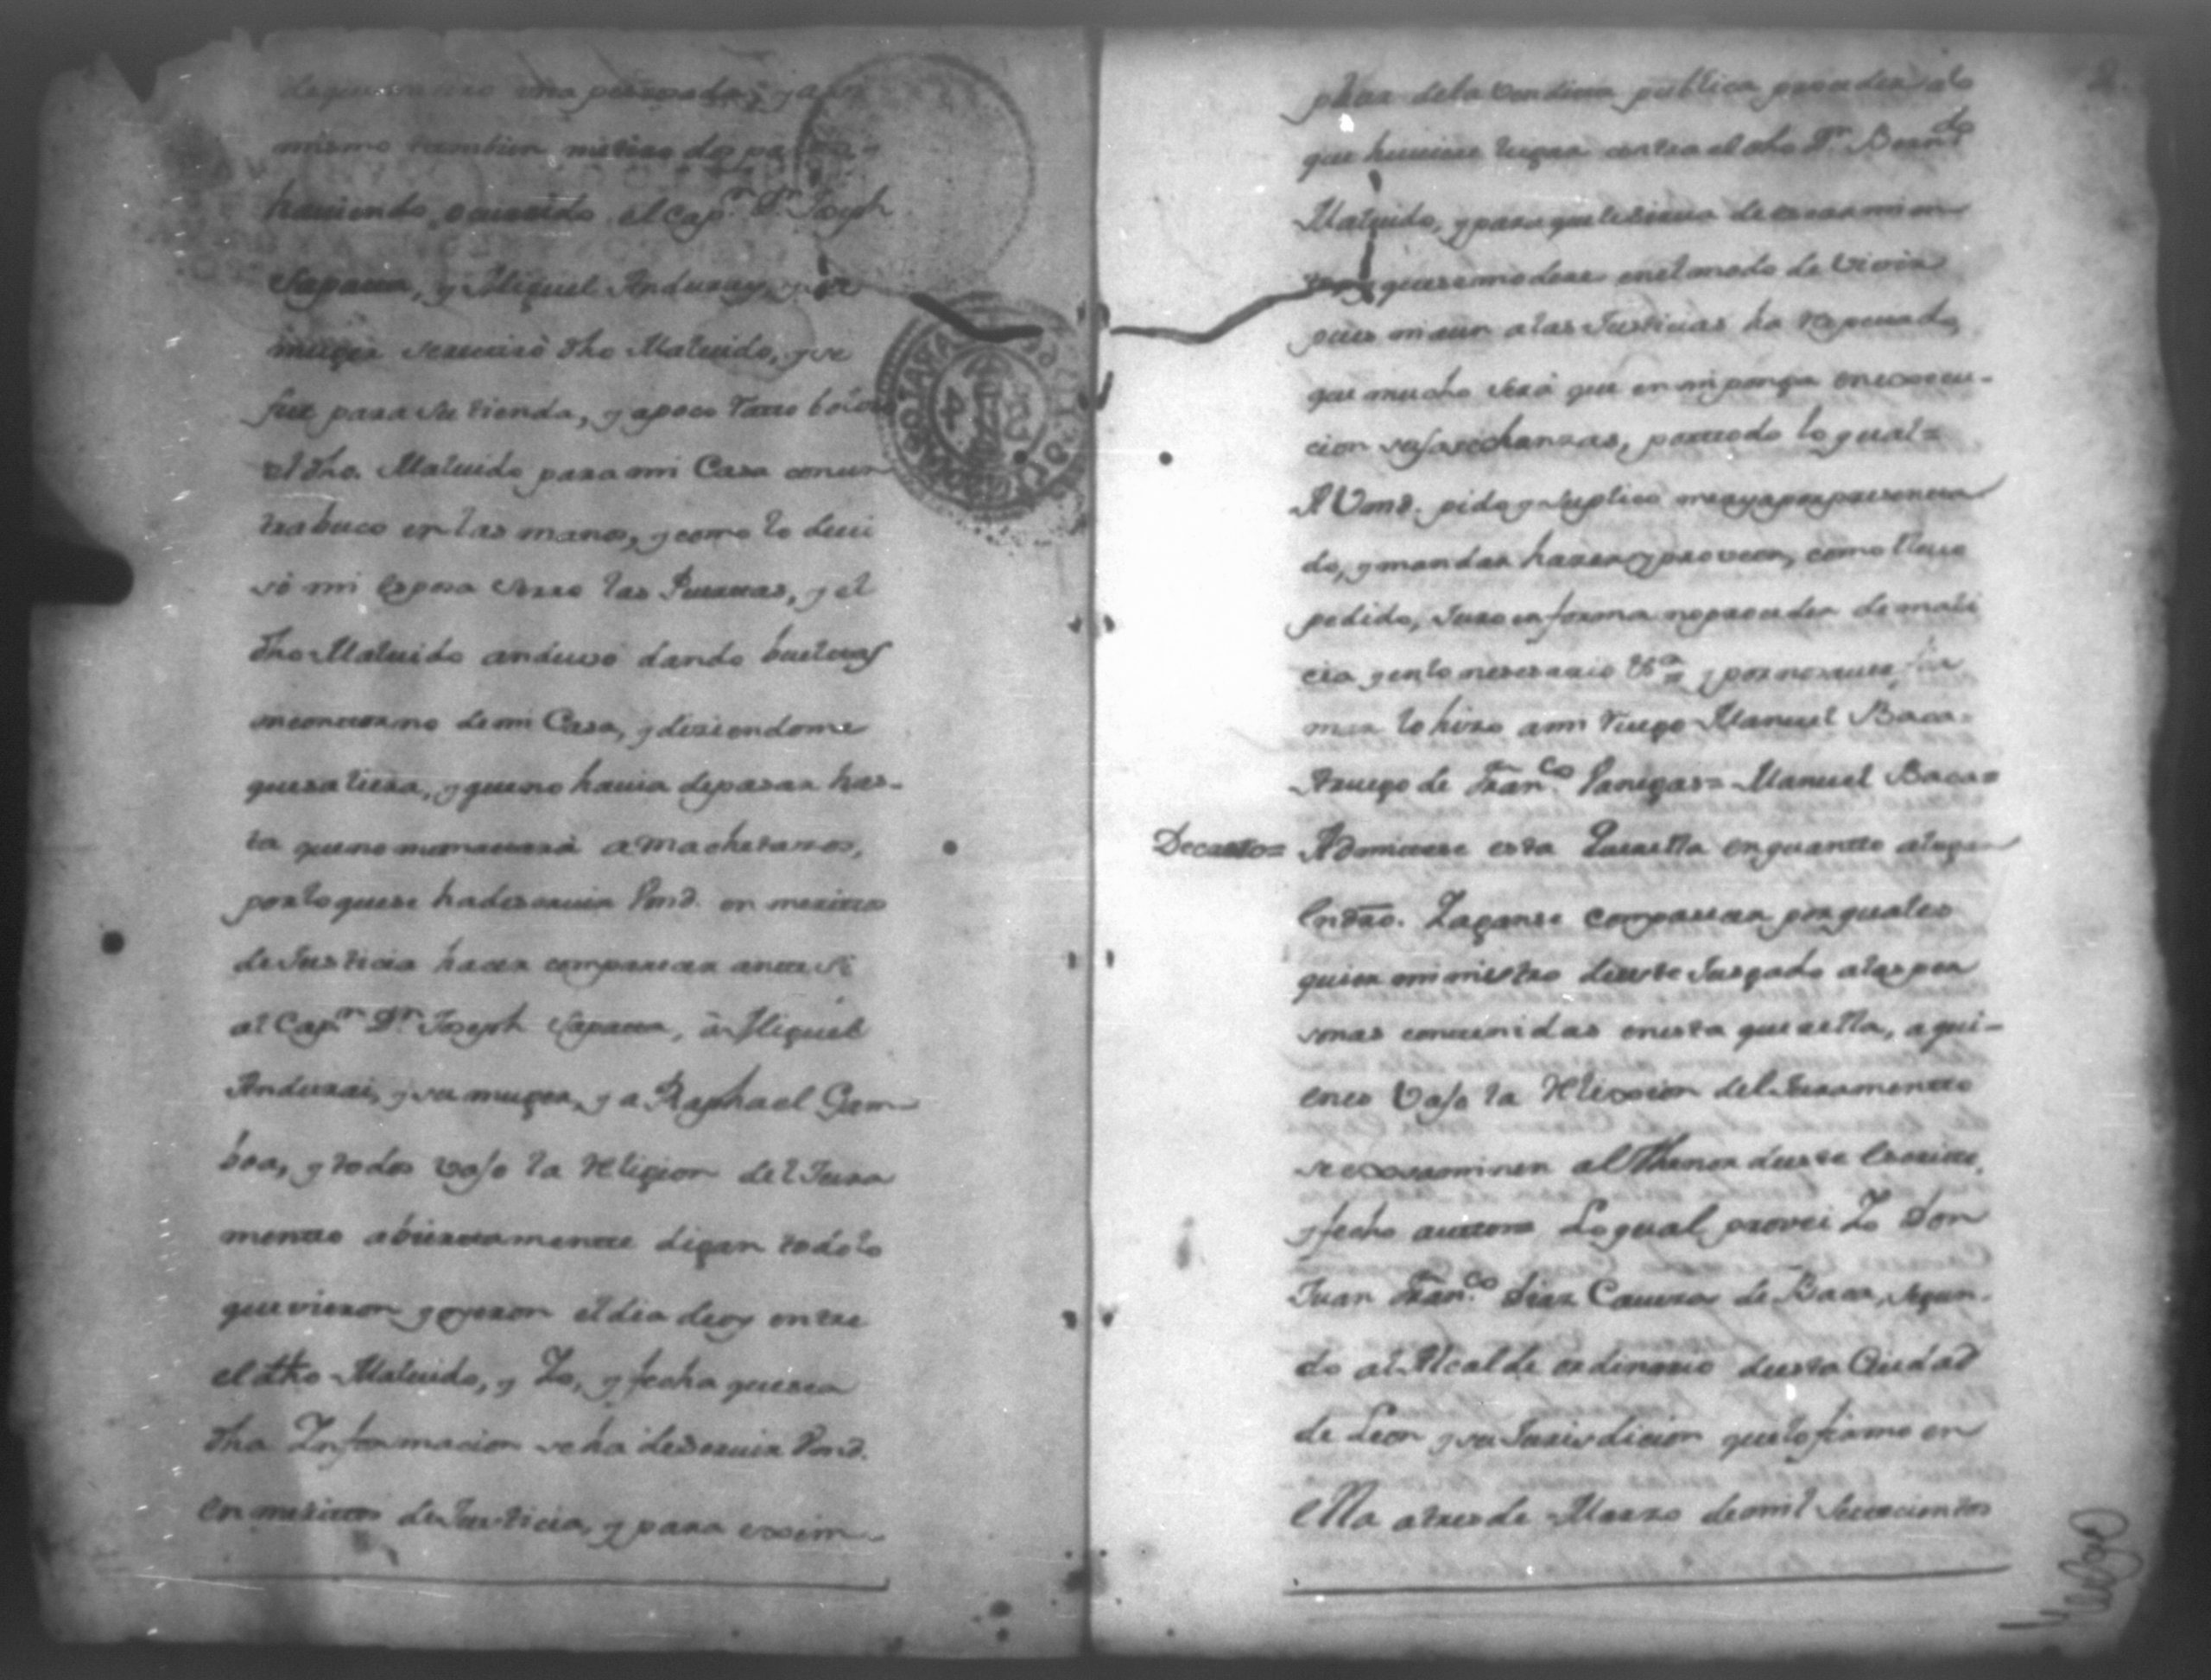 una pedrada, y a
mismo tambien me tiro dos pe
haviendo ocurrido el Cap.n D.n Joseph
Sapatta, y Miguel Anduray, y su
muger se retirò dho Maluido, y se
fue para su tienda, y a poco ratto bolvio
el dho. Maluido para mi Casa con un
trabuco en las manos, y como lo devi
sò mi esposa serro las Puerttas, y el
dho Maluido anduvo dando bueltas
en conttorno de mi Casa, y diziendome
que saliera, y que no havia de parar has-
ta que no me mattara à machetazos,
por lo que se ha de servir Vmd. en merittos
de Justicia hacer comparecer antte si
al Cap.n D.n Joseph Sapatta, à Miguel
Andurai, y su muger, y a Raphael Gam-
boa, y todos vajo la religion del Jura
mentto abierttamentte digan todo lo
que vieron y oyeron el dia de oy entre
el dho Maluido, y Yo, y fecha que sea
dha Ynformacion se ha de servir Vmd.
en merittos de Justicia, y para exem
plar de la vendicta publica proceder a lo
que huviere lugar contra el dho D.n Bern.do
Maluido, y para que le sirva de escarmien
to y que se modere en el modo de vivir
pues ni aun a las Justicias ha respectado
que mucho serà que en mi ponga en execu-
cion sus asechanzas, por ttodo lo qual=
A Vmd. pido y suplico me aya por presenta
do, y mandar hazer y proveer, como llevo
pedido, Juro en forma no proceder de mali
cia y en lo nesessario &.a y por no saver fir
mar lo hizo a mi ruego Manuel Baca=
A ruego de Fran.co Vanegas= Manuel Baca=
Decretto= Admittese esta Querella en quantto a lugar
en dro. Hagance comparecer por quales
quier ministro de este Jusgado a las per
sonas conttenidas en esta querella, a qui-
enes vajo la relixion del Juramentto
se exsaminen al thenor de este escritto,
y fecho auttos Lo qual provei Yo Don
Juan Fran.co Diaz Cauesas de Baca, segun-
do al Alcalde ordinario de esta Ciudad
de Leon y su Jurisdicion que lo firmo en
ella a tres de Marzo de mil settecientos